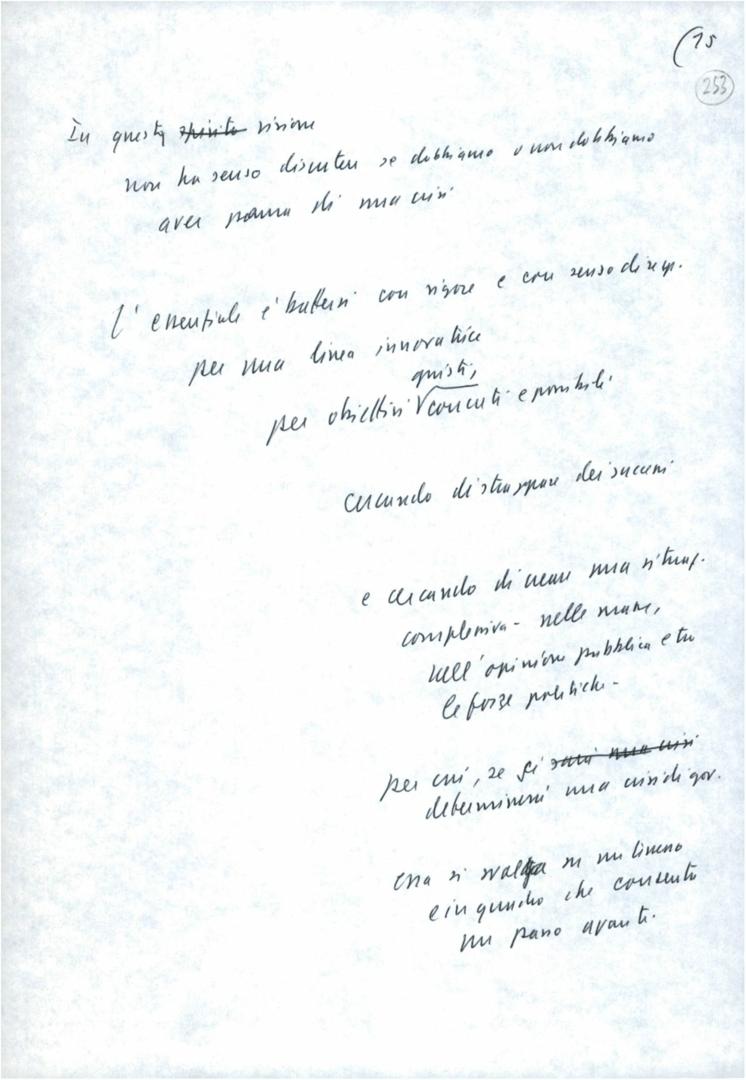 (15
253
In questa spirito visione
non ha senso discutere se dobbiamo o non dobbiamo
aver paura di una crisi
l'essenziale è battersi con rigore e con senso di resp.
per una linea innovatrice
giusti,
per obiettivi concreti e possibili
cercando di strappare dei successi
e cercando di creare una situaz.
complessiva - nelle masse,
nell'opinione pubblica e tra
le forze politiche -
per cui, se si sarà una crisi
determinerà una crisi di gov.
essa si svolga su un terreno
e in quadro che consenta
un passo avanti.